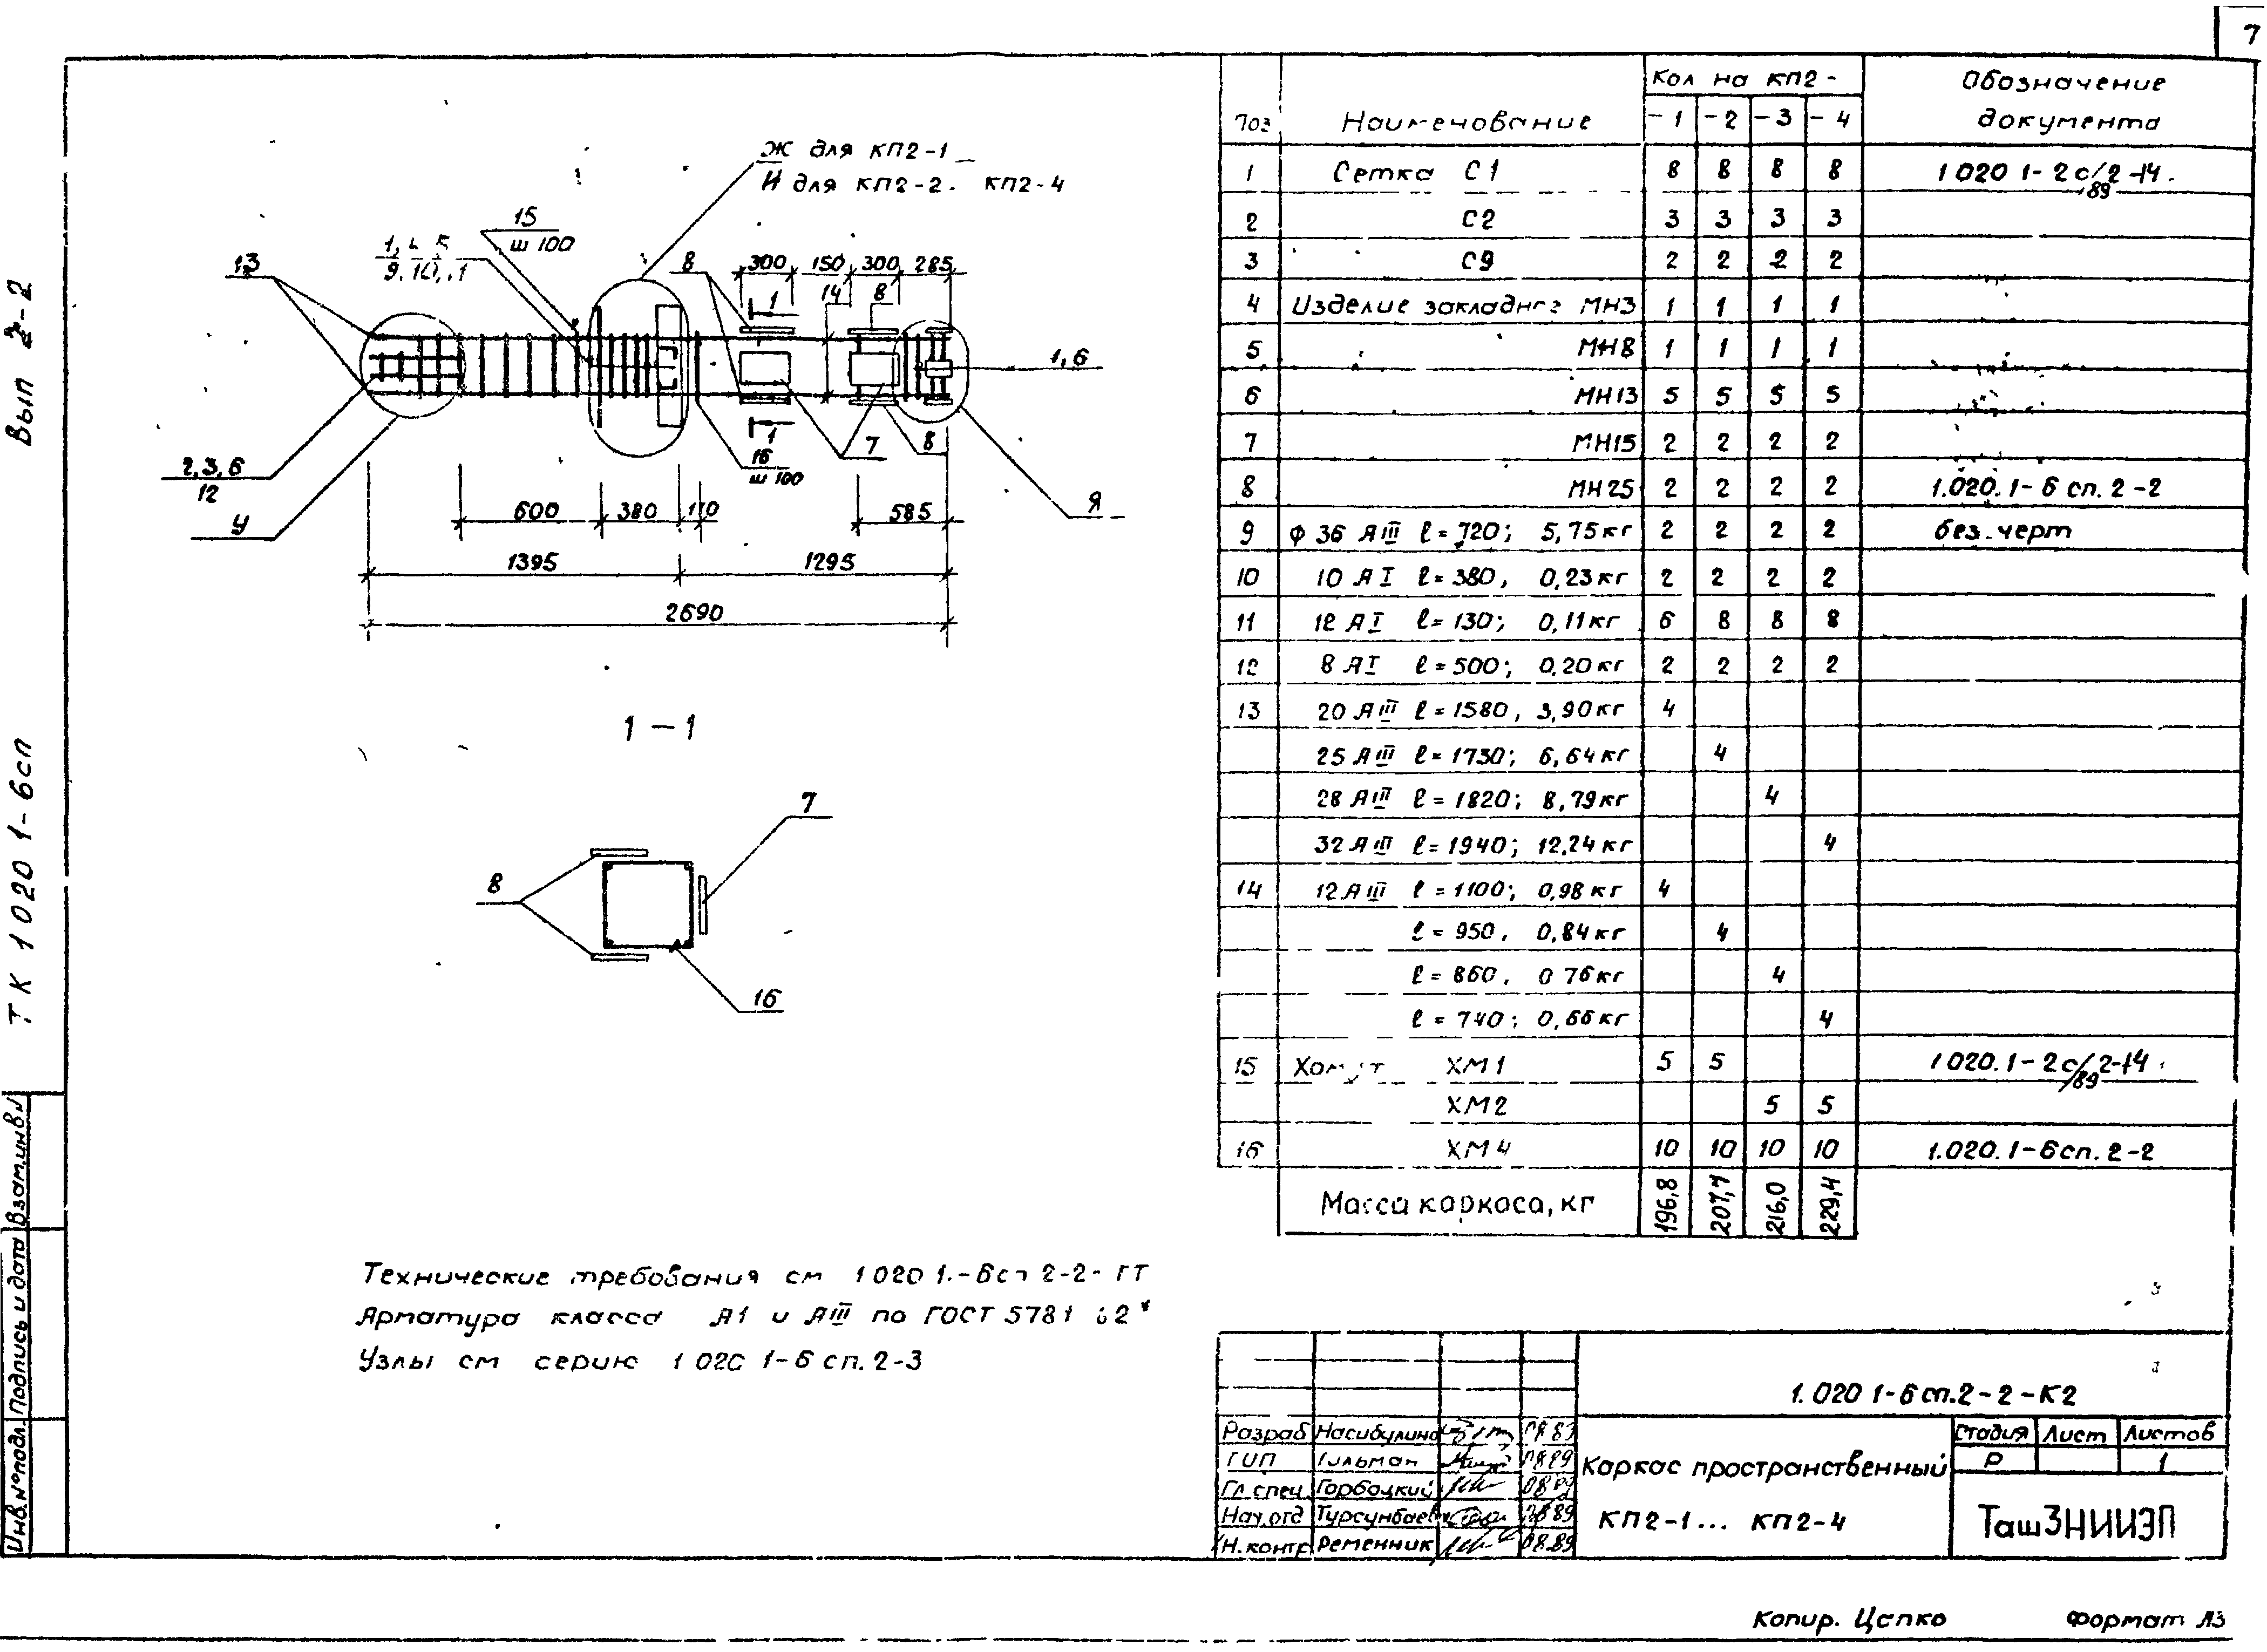 7
Вып 2-2
ТК 1020 1-6сп
Ж для КП2-1
И для КП2-2. КП2-4
15
ш 100
13
8
300 150 300 285
14
8
1
1,6
2,3,6
12
У
1
16
ш 100
7
8
Я
600 380 110 585
1395 1295
2690
1-1
7
8
16
Поз Наименование Кол на КП2- Обозначение документа
-1 -2 -3 -4
1 Сетка С1 8 8 8 8 1020 1-2с/89 2-14
2 С2 3 3 3 3
3 С9 2 2 2 2
4 Изделие закладное МН3 1 1 1 1
5 МН8 1 1 1 1
6 МН13 5 5 5 5
7 МН15 2 2 2 2
8 МН25 2 2 2 2 1.020.1-6 сп.2-2
9 Ф 36 АIII ℓ=720; 5,75кг 2 2 2 2 без.черт
10 10 АI ℓ=380, 0,23кг 2 2 2 2
11 12 АI ℓ=130; 0,11кг 6 8 8 8
12 8 АI ℓ=500; 0,20кг 2 2 2 2
13 20 АIII ℓ=1580, 3,90кг 4
25 АIII ℓ=1730; 6,64кг 4
28 АIII ℓ=1820; 8,79кг 4
32 АIII ℓ=1940; 12,24кг 4
14 12 АIII ℓ=1100; 0,98кг 4
ℓ=950, 0,84кг 4
ℓ=860, 0 76кг 4
ℓ=740; 0,66кг 4
15 Хомут ХМ1 5 5 1020.1-2с/89 2-14
ХМ2 5 5
16 ХМ4 10 10 10 10 1.020.1-6сп.2-2
Масса каркаса, кг 196,8 207,7 216,0 229,4
Технические требования см 1020 1.-6сп 2-2-ТТ
Арматура класса А1 и АIII по ГОСТ 5781 82*
Узлы см серию 1020 1-6 сп.2-3
1.020 1-6сп.2-2-К2
Разраб Насибулина 08.89
ГИП Гильман 08.89
Гл.спец. Горбацкий 08.89
Нач.отд Турсунбаев 08.89
Н.контр Ременник 08.89
Каркас пространственный
КП2-1... КП2-4
Стадия Лист Листов
Р 1
ТашЗНИИЭП
Взам.инв.№
Подпись и дата
Инв.№подл.
Копир. Цапко Формат А3